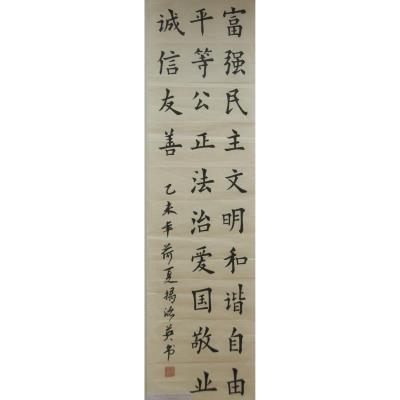 富强民主文明和谐自由
平等公正法治爱国敬业
诚信友善
乙未年荷夏揭海英书